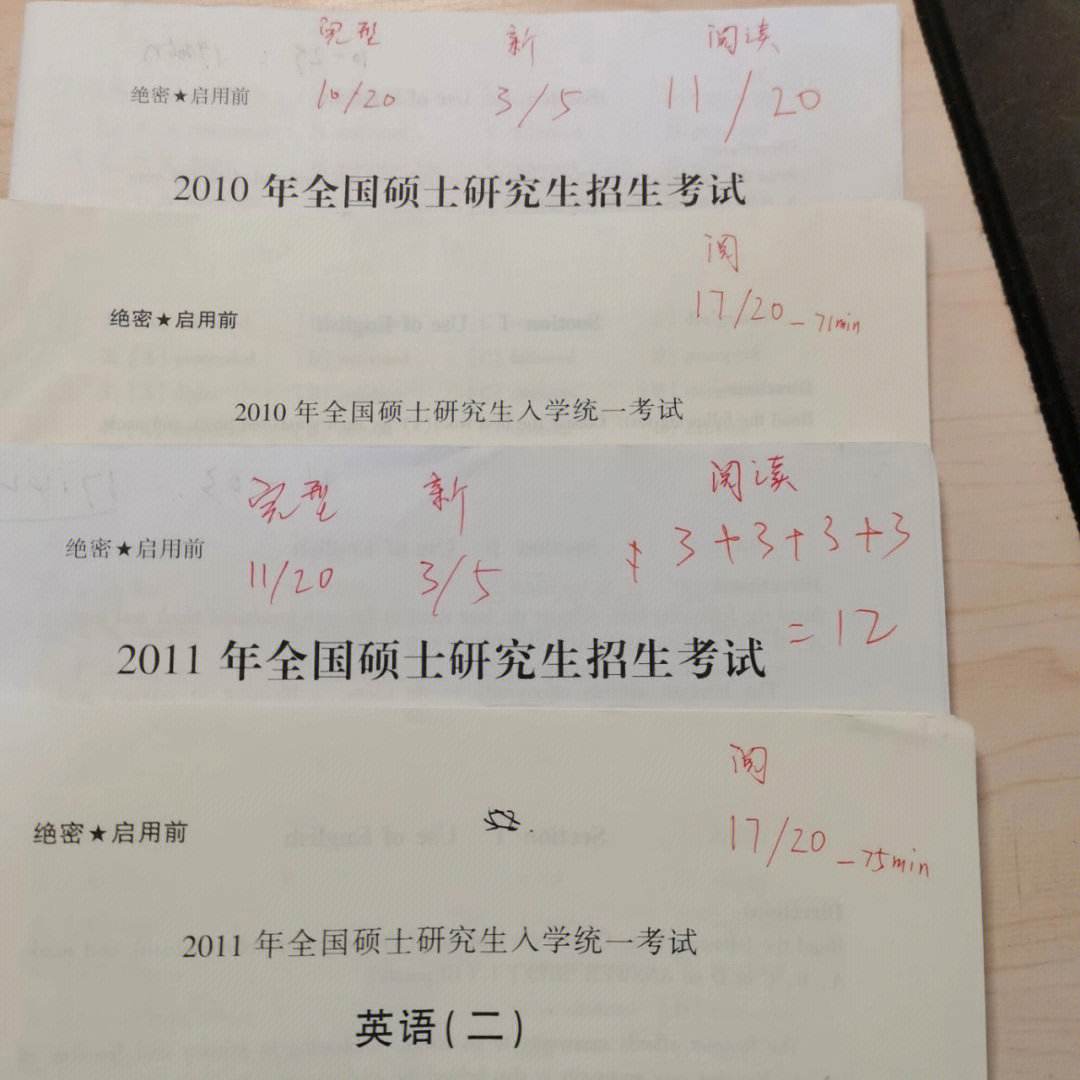 完型 新 阅读
绝密★启用前 10/20 3/5 11/20
2010年全国硕士研究生招生考试
阅
绝密★启用前 17/20-71min
2010年全国硕士研究生入学统一考试
完型 新 阅读
绝密★启用前 11/20 3/5 3+3+3+3
=12
2011年全国硕士研究生招生考试
阅
绝密★启用前 17/20-75min
2011年全国硕士研究生入学统一考试
英语(二)